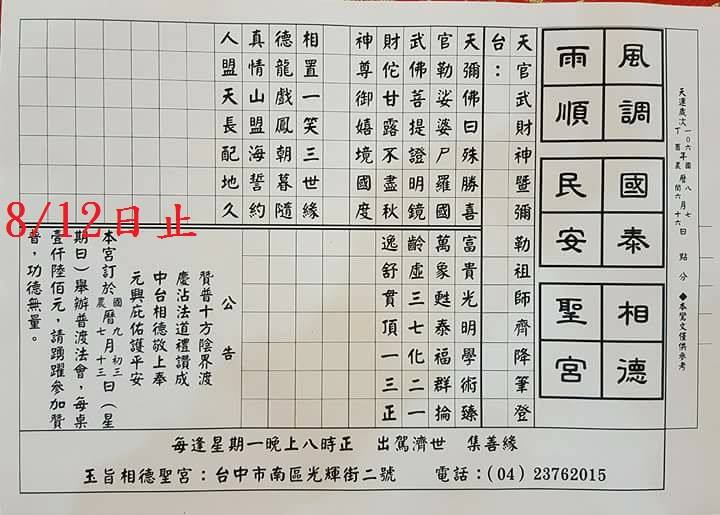 天運歲次 一〇六年國曆八月七日 丁酉農曆閏六月十六日 點 分 ◆本聖文僅供參考
風調雨順
國泰民安
相德聖宮
天官武財神暨彌勒祖師齊降筆登
台：
天彌佛曰殊勝喜 富貴光明學術臻
官勒娑婆尸羅國 萬象甦泰福群掄
武佛菩提證明鏡 齡虛三七化二一
財佗甘露不盡秋 逸舒貫頂一三正
神尊御嬉境國度
相置一笑三世緣
德龍戲鳳朝暮隨
真情山盟海誓約
人盟天長配地久
8/12日止
公告
贊普十方陰界渡
慶沾法道禮讚成
中台相德敬上奉
元興庇佑護平安
本宮訂於國農曆九七月初三十三日（星
期日）舉辦普渡法會，每桌
壹仟陸佰元，請踴躍參加贊
普，功德無量。
每逢星期一晚上八時正 出駕濟世 集善緣
玉旨相德聖宮：台中市南區光輝街二號 電話：(04) 23762015